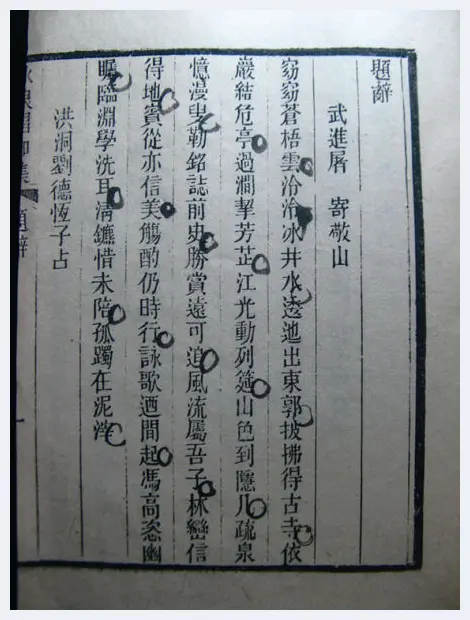 題辭
武進屠 寄敬山
窈窈蒼梧雲泠泠冰井水逶迤出東郭披拂得古寺依
巖結危亭過澗挈芳芷江光動列筵山色到隱几疏泉
憶漫叟勒銘誌前史勝賞遠可追風流屬吾子林巒信
得地賓從亦信美觴酌仍時行詠歌迺間起馮高恣幽
矚臨淵學洗耳淸鑣惜未陪孤躅在泥滓
洪洞劉德恆子占
冰泉唱和集 題辭 一